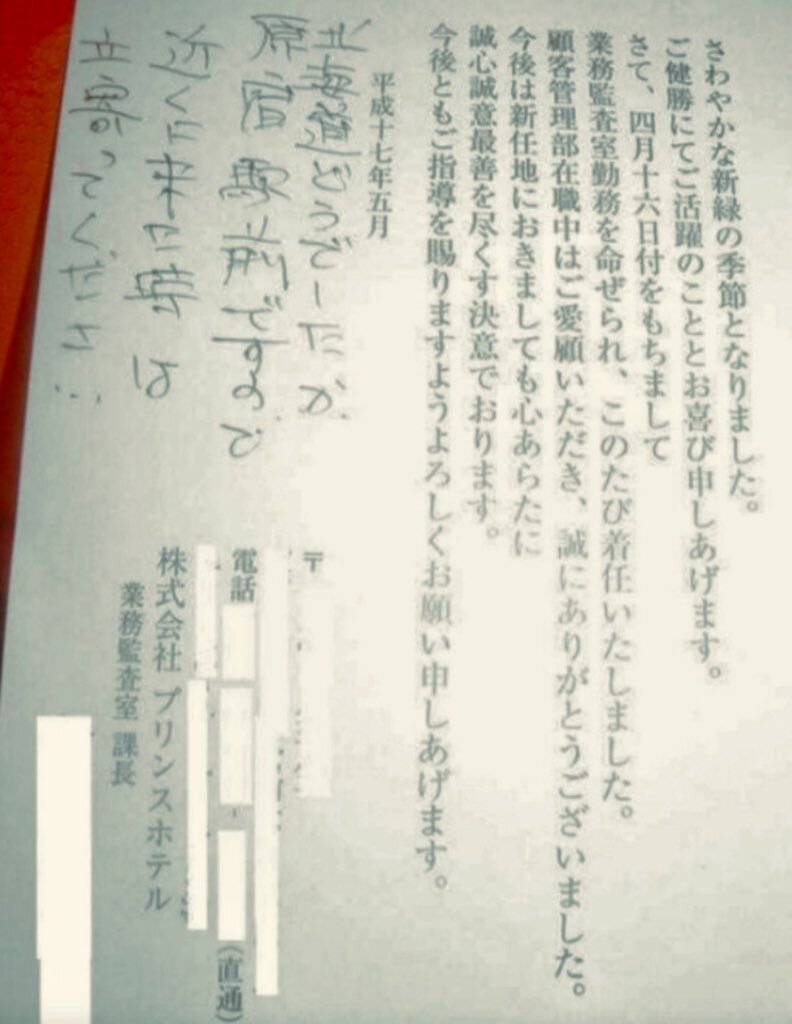 さわやかな新緑の季節となりました。
ご健勝にてご活躍のこととお喜び申しあげます。
さて、四月十六日付をもちまして
業務監査室勤務を命ぜられ、このたび着任いたしました。
顧客管理部在職中はご愛顧いただき、誠にありがとうございました。
今後は新任地におきましても心あらたに
誠心誠意最善を尽くす決意でおります。
今後ともご指導を賜りますようよろしくお願い申しあげます。
平成十七年五月
北海道どうでしたか
原宿駅前ですので
近くに来た時は
立寄ってください
〒
電話
(直通)
株式会社 プリンスホテル
業務監査室 課長